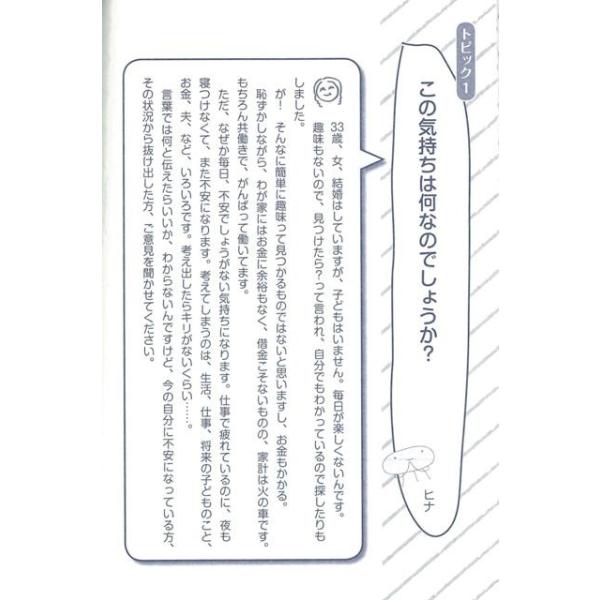 トピック1
この気持ちは何なのでしょうか?
ヒナ
33歳、女、結婚はしていますが、子どもはいません。毎日が楽しくないんです。
趣味もないので、見つけたら?って言われ、自分でもわかっているので探したりも
しました。
が! そんなに簡単に趣味って見つかるものではないと思いますし、お金もかかる。
恥ずかしながら、わが家にはお金に余裕もなく、借金こそないものの、家計は火の車です。
もちろん共働きで、がんばって働いてます。
ただ、なぜか毎日、不安でしょうがない気持ちになります。仕事で疲れているのに、夜も
寝つけなくて、また不安になります。考えてしまうのは、生活、仕事、将来の子どものこと、
お金、夫、など、いろいろです。考え出したらキリがないくらい……。
言葉では何と伝えたらいいか、わからないんですけど、今の自分に不安になっている方、
その状況から抜け出した方、ご意見を聞かせてください。